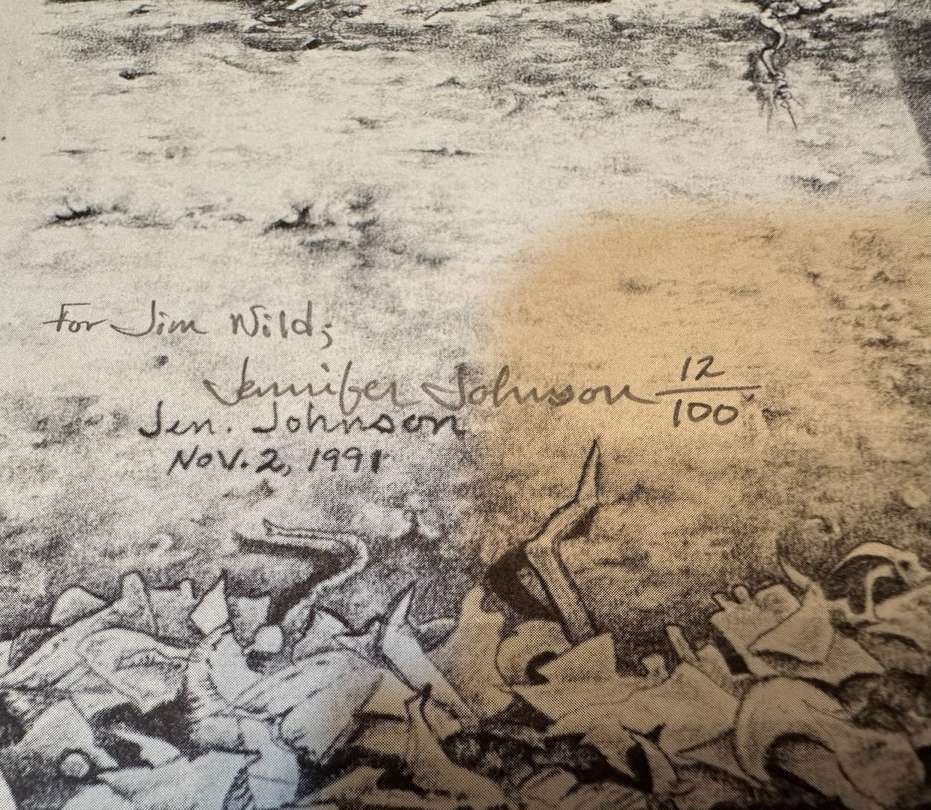 For Jim Wild;
Jennifer Johnson 12/100
Jen. Johnson
Nov. 2, 1991